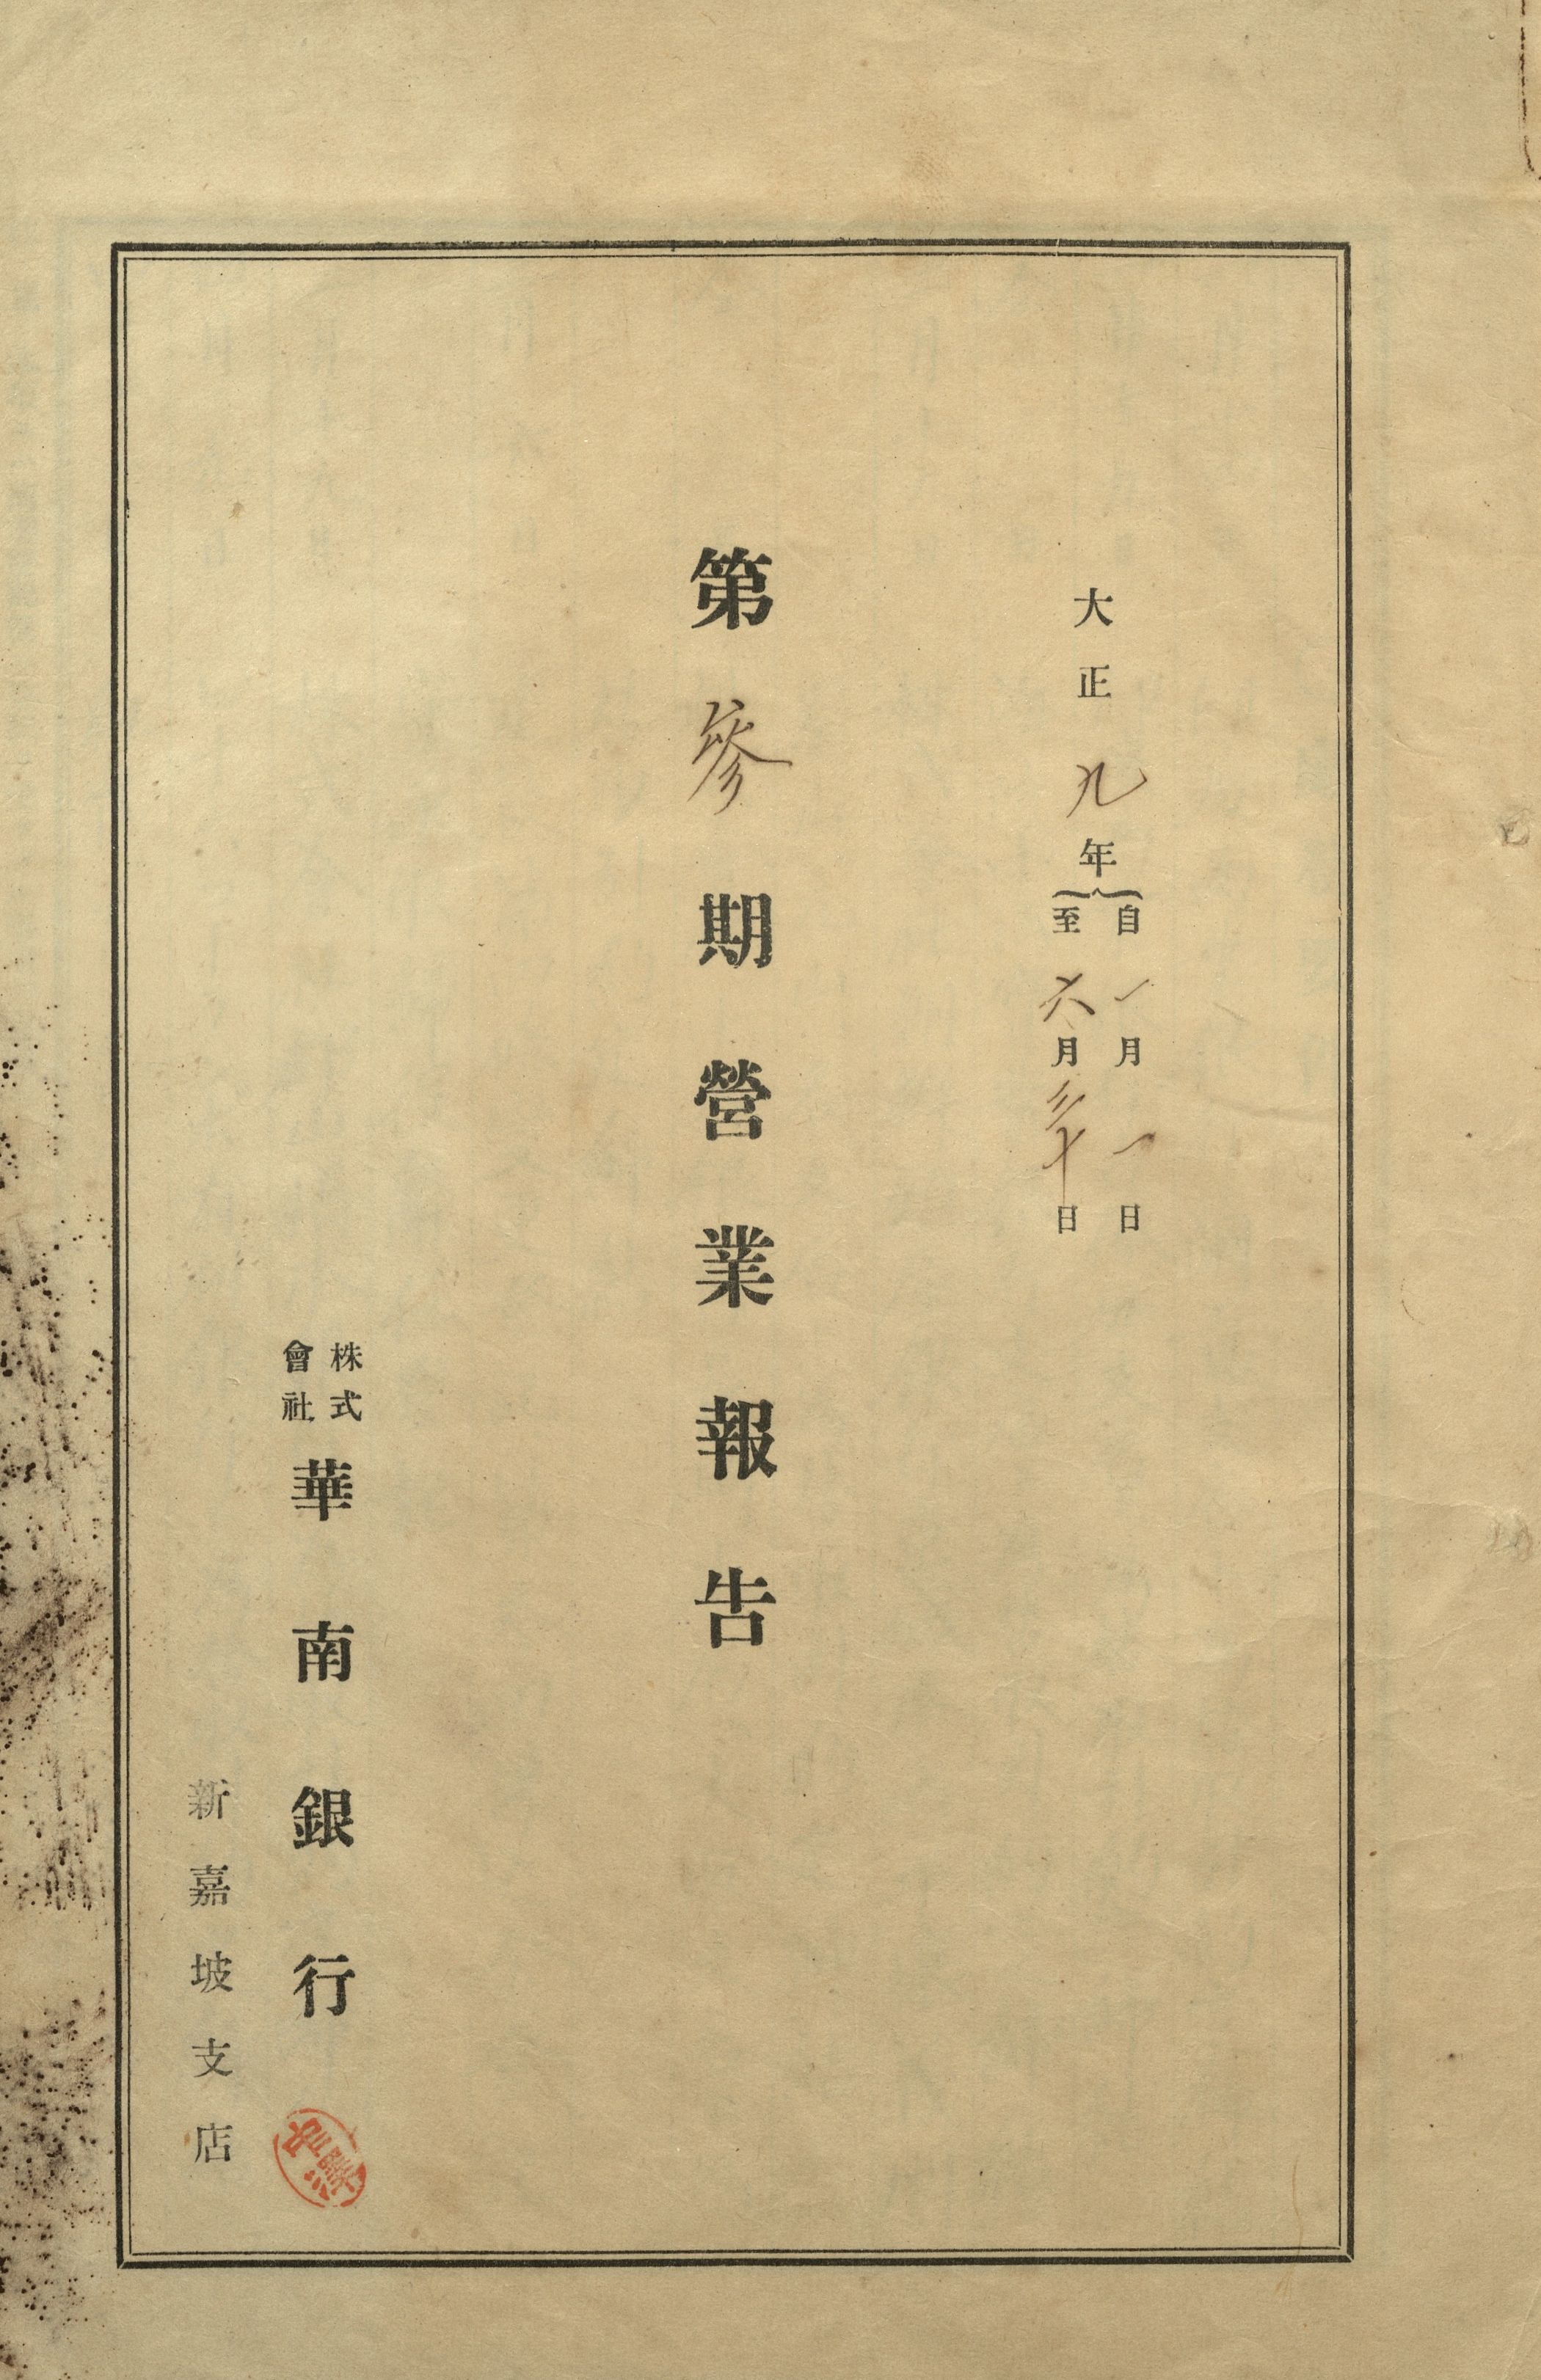 大正九年
自一月一日
至六月三十日
第參期營業報告
株式會社華南銀行
新嘉坡支店